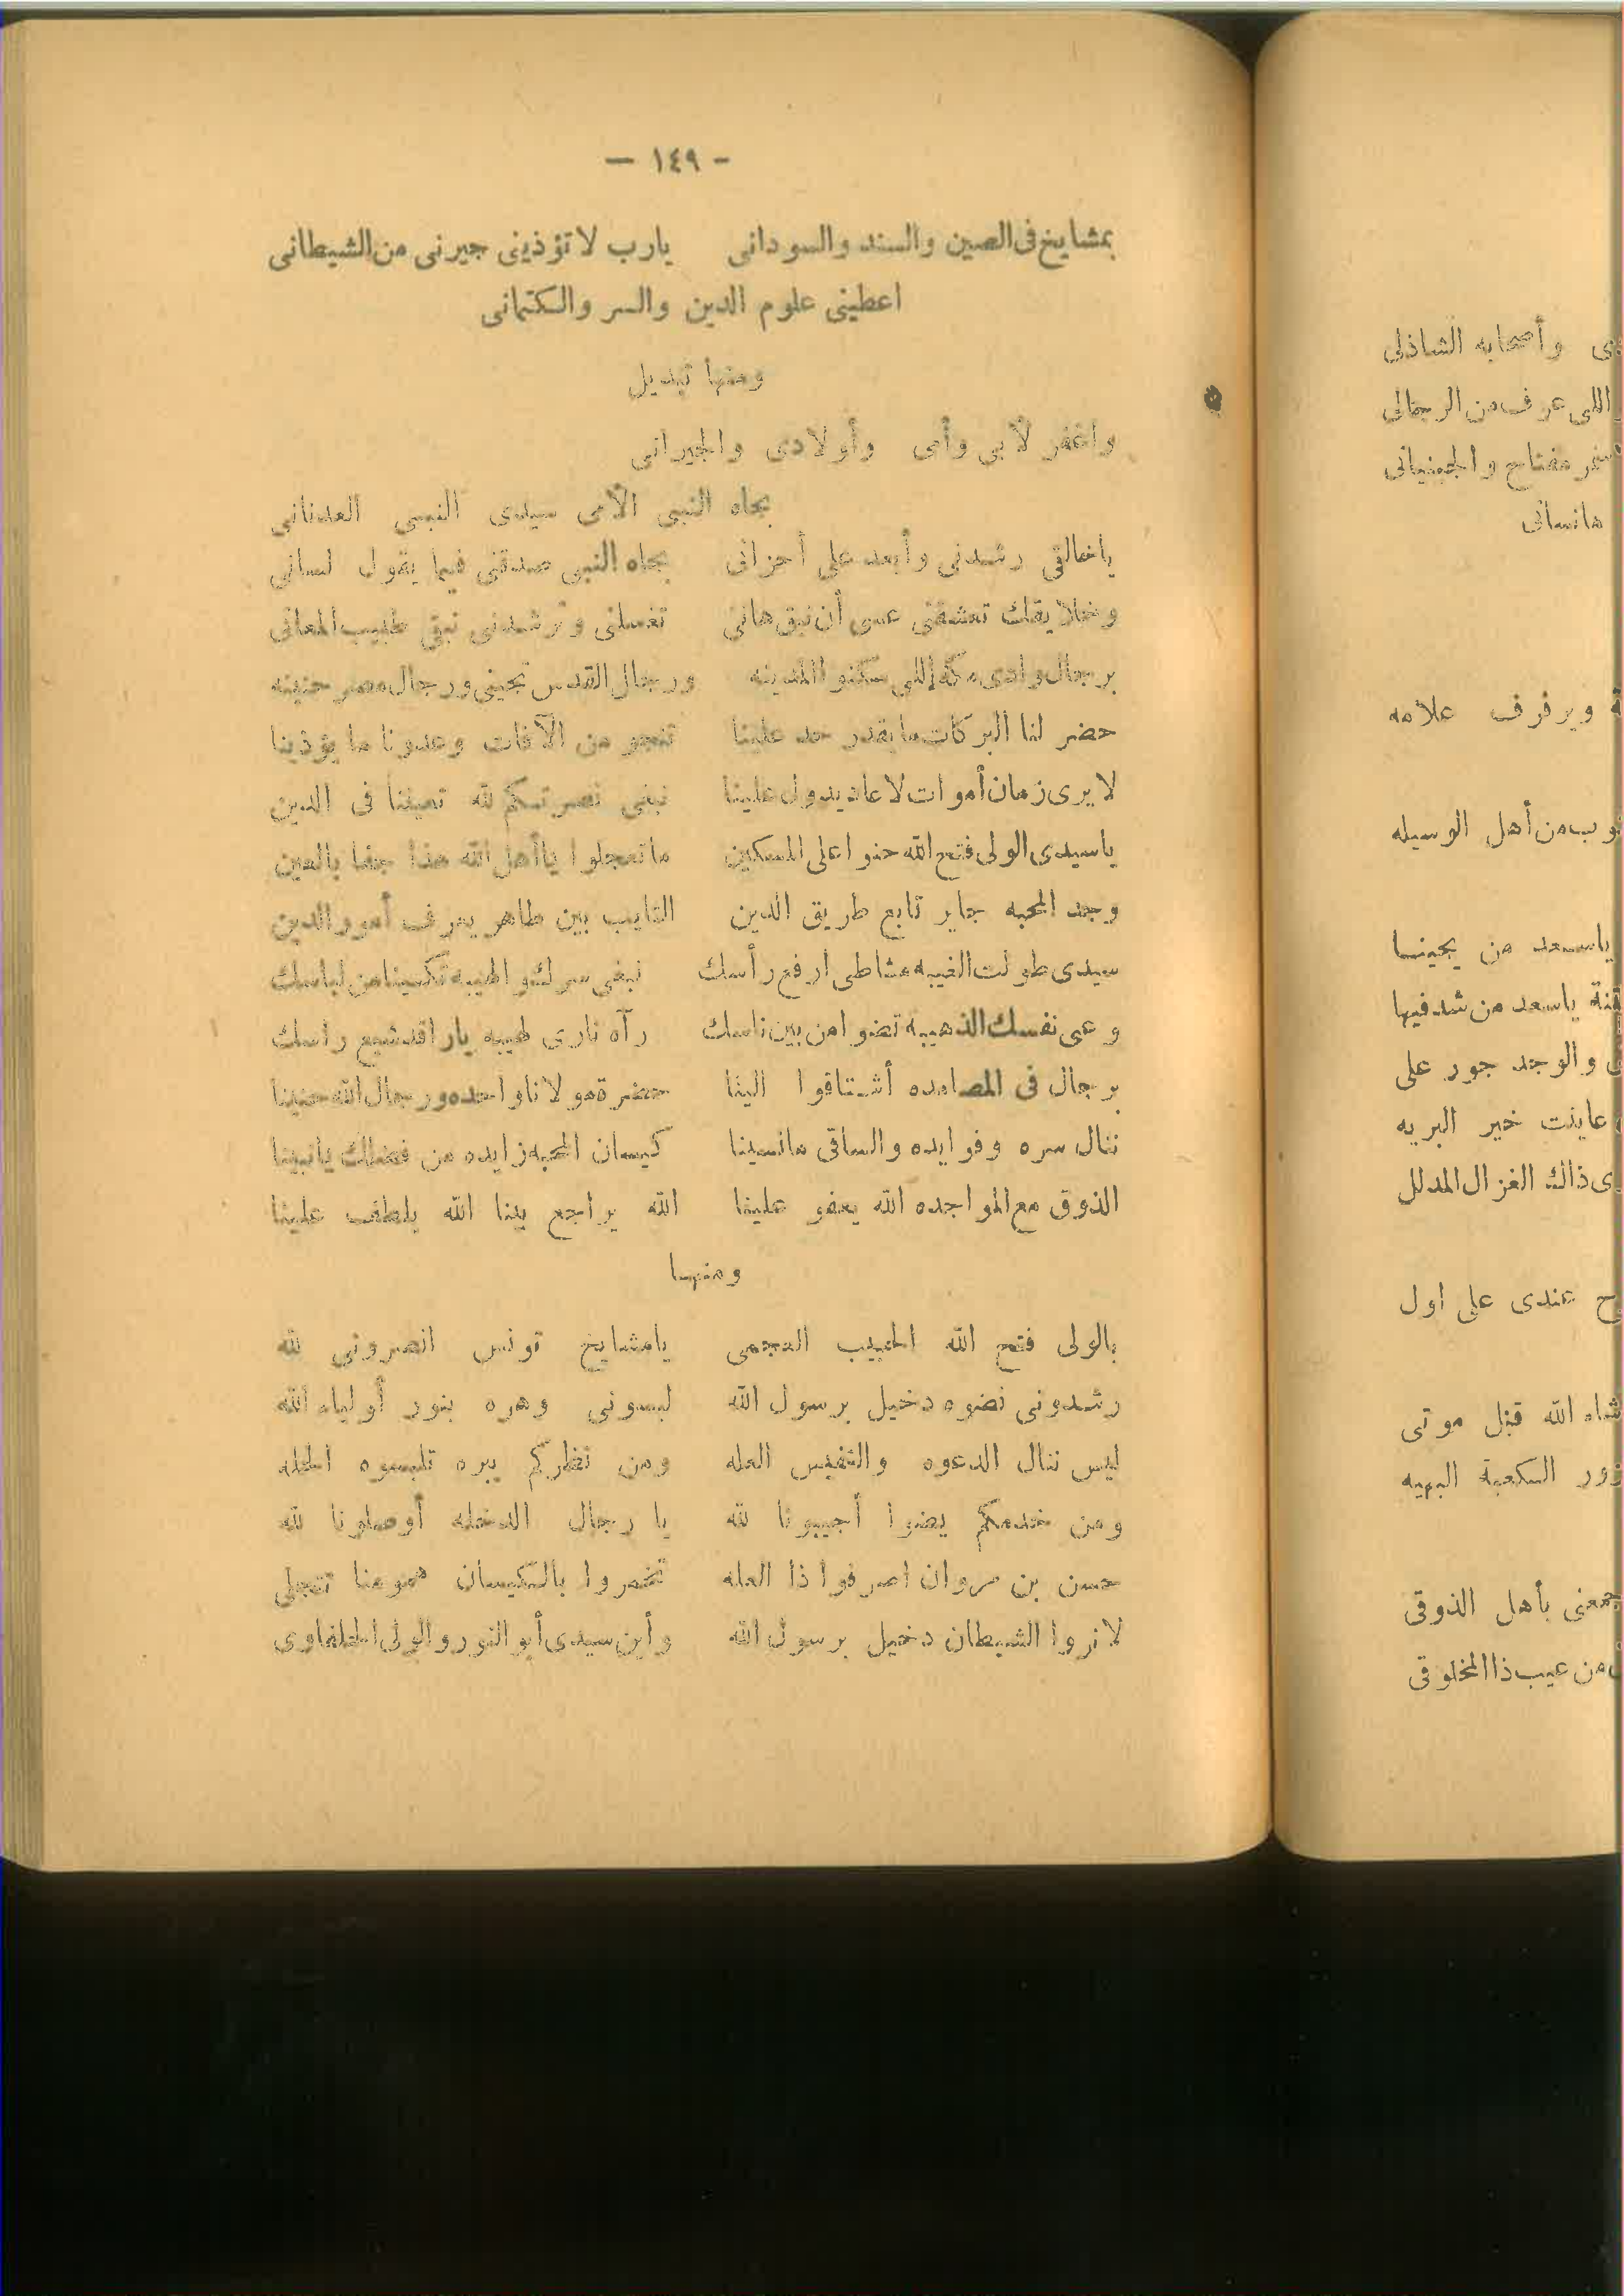 — ١٤٩ -
بمشايخ فى الصين والسند والسودانى يارب لا تؤذينى جيرنى من الشيطانى
اعطينى علوم الدين والسر والكتمانى
ومنها تبديل
واغفر لأبى وأمى وأولادى والجيرانى
بجاه النبى الأمى سيدى النبى العدنانى
ياخالقى رشدنى وأبعد على أحزانى بجاه النبى صدقنى فيما يقول لسانى
وخلا يقك تعشقنى عسى أن نبقى هانى تغسلنى وترشدنى نبقى طبيب المعانى
برجال وادى مكة إللى سكنوا المدينه ورجال القدس تجينى ورجال مصر حنينه
حضر لنا البركات ما يقدر حد علينا تنجو من الآفات وعدونا ما يؤذينا
لا يرى زمان أموات لا عاد يدول علينا نبغى نصرتكم لله تعيننا فى الدين
ياسيدى الولى فتح الله حنوا على المسكين ما تعجلوا يا أهل الله هذا جفا بالعين
وجد المحبه جاير تابع طريق الدين التايب بين طاهر يعرف أمور الدين
سيدى طولت الغيبه عشاطى ارفع رأسك نبغى سرك والهيبه تكسينا من لباسك
وعى نفسك الذهيبه تضوا من بين ناسك رآه نارى لهيبه ياراقد شيع راسك
برجال فى المصامده أشتاقوا الينا حضرة مولانا واحده ورجال الله حنينا
ننال سره وفوايده والساقى مانسينا كيسان المحبه زايده من فضلك يانبينا
الذوق مع المواجده الله يعفو علينا الله يراجع بنا الله يلطف علينا
ومنها
بالولى فتح الله الحبيب العجمى يامشايخ تونس انصرونى لله
رشدونى نضوه دخيل برسول الله لبسونى وهره بنور أولياء الله
ليس ننال الدعوه والنفيس العله ومن نظركم يبره تلبسوه الحله
ومن خدمكم يضوا أجيبونا لله يا رجال الدخله أوصلونا لله
حسن بن مروان اصرفوا ذا العله تخمروا بالكيسان همومنا تتجلى
لا نروا الشيطان دخيل برسول الله وأين سيدى أبو النور والولى الحلفاوى
وأصحابه الشاذلى
اللى عرف من الرجالى
مفتاح والجبنيانى
مانسانى
ويرفرف علامه
من أهل الوسيله
ياسعد من يجينا
ياسعد من شد فيها
والوجد جور على
عاينت خير البريه
ذاك الغزال المدلل
عندى على اول
شاء الله قبل موتى
الكعبة البهيه
بأهل الذوقى
من عيب ذا المخلوقى